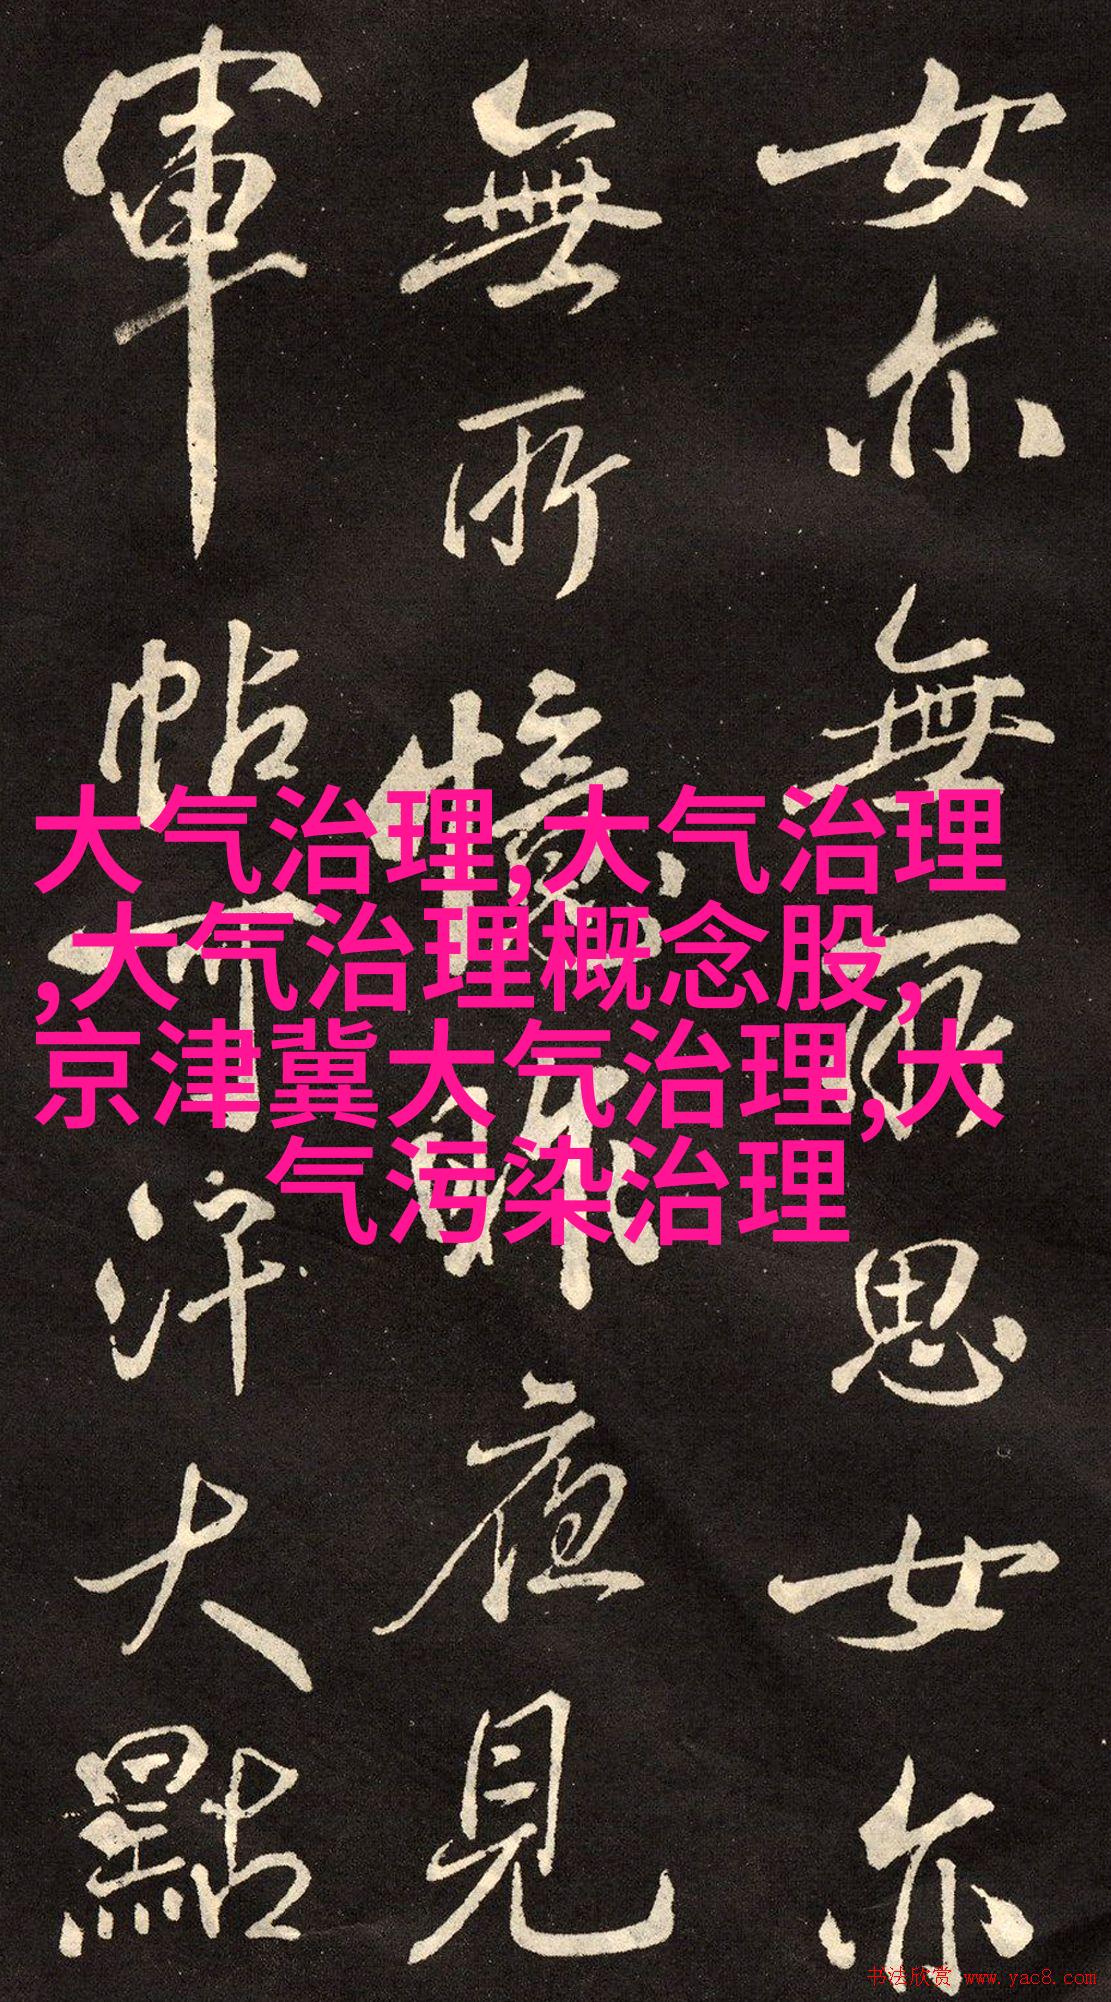 女亦無所思女亦
無所憶昨夜見
軍帖可汗大點
大气治理,大气治理
,大气治理概念股,
京津冀大气治理,大
气污染治理
书法欣赏 www.yac8.com